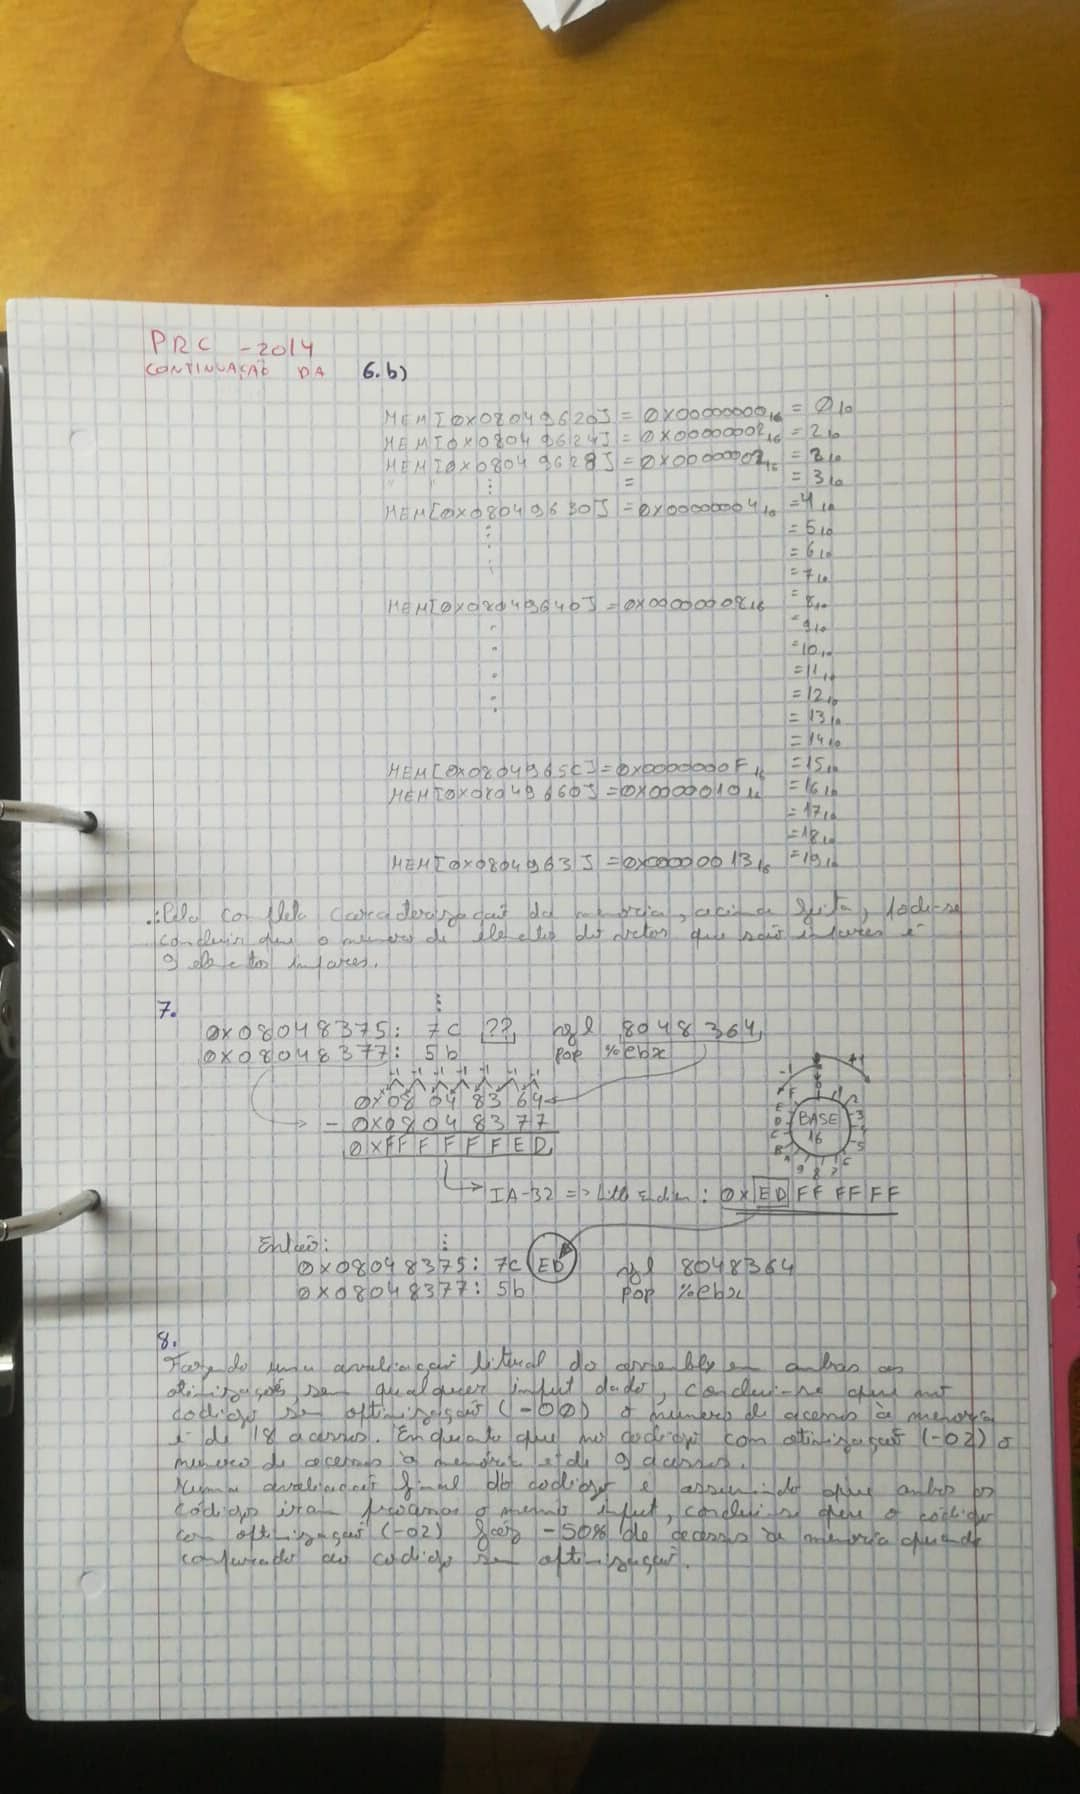 PRC -2014
CONTINUAÇÃO DA 6.b)
MEM[0x08049620] = 0x00000000₁₆ = 0₁₀
MEM[0x08049624] = 0x00000002₁₆ = 2₁₀
MEM[0x08049628] = 0x00000002₁₆ = 2₁₀
" " ⋮ = = 3₁₀
MEM[0x08049630] = 0x00000004₁₀ = 4₁₀
= 5₁₀
= 6₁₀
= 7₁₀
MEM[0x08049640] = 0x00000008₁₆ = 8₁₀
= 9₁₀
= 10₁₀
= 11₁₀
= 12₁₀
= 13₁₀
= 14₁₀
MEM[0x0804965C] = 0x0000000F₁₆ = 15₁₀
MEM[0x08049660] = 0x0000010₁₆ = 16₁₀
= 17₁₀
= 18₁₀
MEM[0x0804963] = 0x00000013₁₆ = 19₁₀
∴ Pela completa caracterização da memória, acima feita, pode-se
concluir que o número de elementos do vetor que são ímpares é
9 elementos ímpares.
7.
0x08048375: 7c ?? jgl 8048364
0x08048377: 5b pop %ebx
-1 -1 -1 -1 -1 -1 -1
0x08 04 83 64
- 0x08 04 83 77
0xFF F F F F E D
-1 +1
0 1 2 3 4 5 6 7 8 9 A B C D E F
BASE
16
IA-32 => Little Endian: 0x ED FF FF FF
Então:
0x08048375: 7c ED jgl 8048364
0x08048377: 5b pop %ebx
8.
Fazendo uma avaliação literal do assembly em ambas as
otimizações, sem qualquer input dado, conclui-se que no
codigo sem optimização (-O0) o número de acessos à memória
é de 18 acessos. Enquanto que no codigo com otimização (-O2) o
número de acessos à memória é de 9 acessos.
Numa avaliação final do codigo e assumindo que ambos os
códigos iram processar o mesmo input, conclui-se que o código
com optimização (-O2) fará -50% de acessos à memória quando
comparado ao codigo sem optimização.